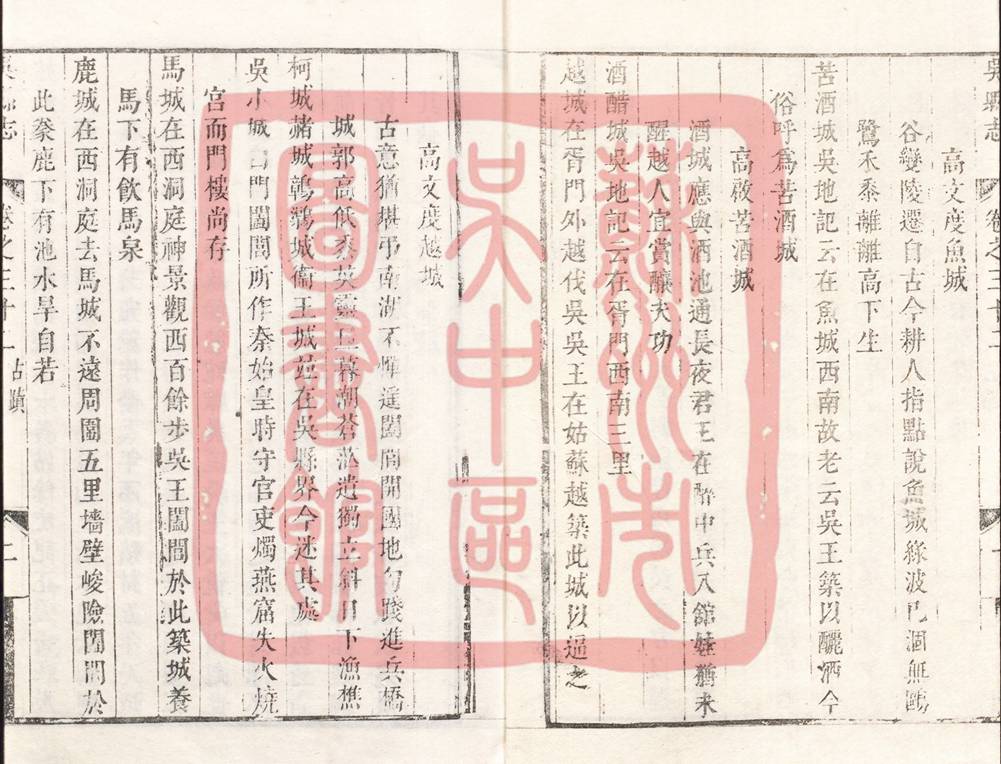 吳縣志
卷之三十二
高文度魚城
谷變陵遷自古今耕人指點說魚城綠波已涸無鷗
鷺禾黍離離高下生
苦酒城吳地記云在魚城西南故老云吳王築以釃酒今
俗呼爲苦酒城
高啟苦酒城
酒城應與酒池通長夜君王在醉中兵入館娃猶未
醒越人宜賞釀夫功
酒醋城吳地記云在胥門西南三里
越城在胥門外越伐吳吳王在姑蘇越築此城以逼之
高文度越城
古意猶堪弔南湖不憚遥闔閭開國地勾踐進兵橋
城郭高低黍英靈旦暮潮蒼茫遺獨立斜日下漁樵
柯城藉城鶉鷃城衞王城並在吳縣界今迷其處
吳小城白門闔閭所作秦始皇時守宫吏燭燕窟失火燒
宫而門樓尚存
馬城在西洞庭神景觀西百餘步吳王闔閭於此築城養
馬下有飮馬泉
鹿城在西洞庭去馬城不遠周圍五里墻壁峻險闔閭於
此豢鹿下有池水旱自若
卷之三十二
古蹟
二
蘇州市
吴中區
圖書館